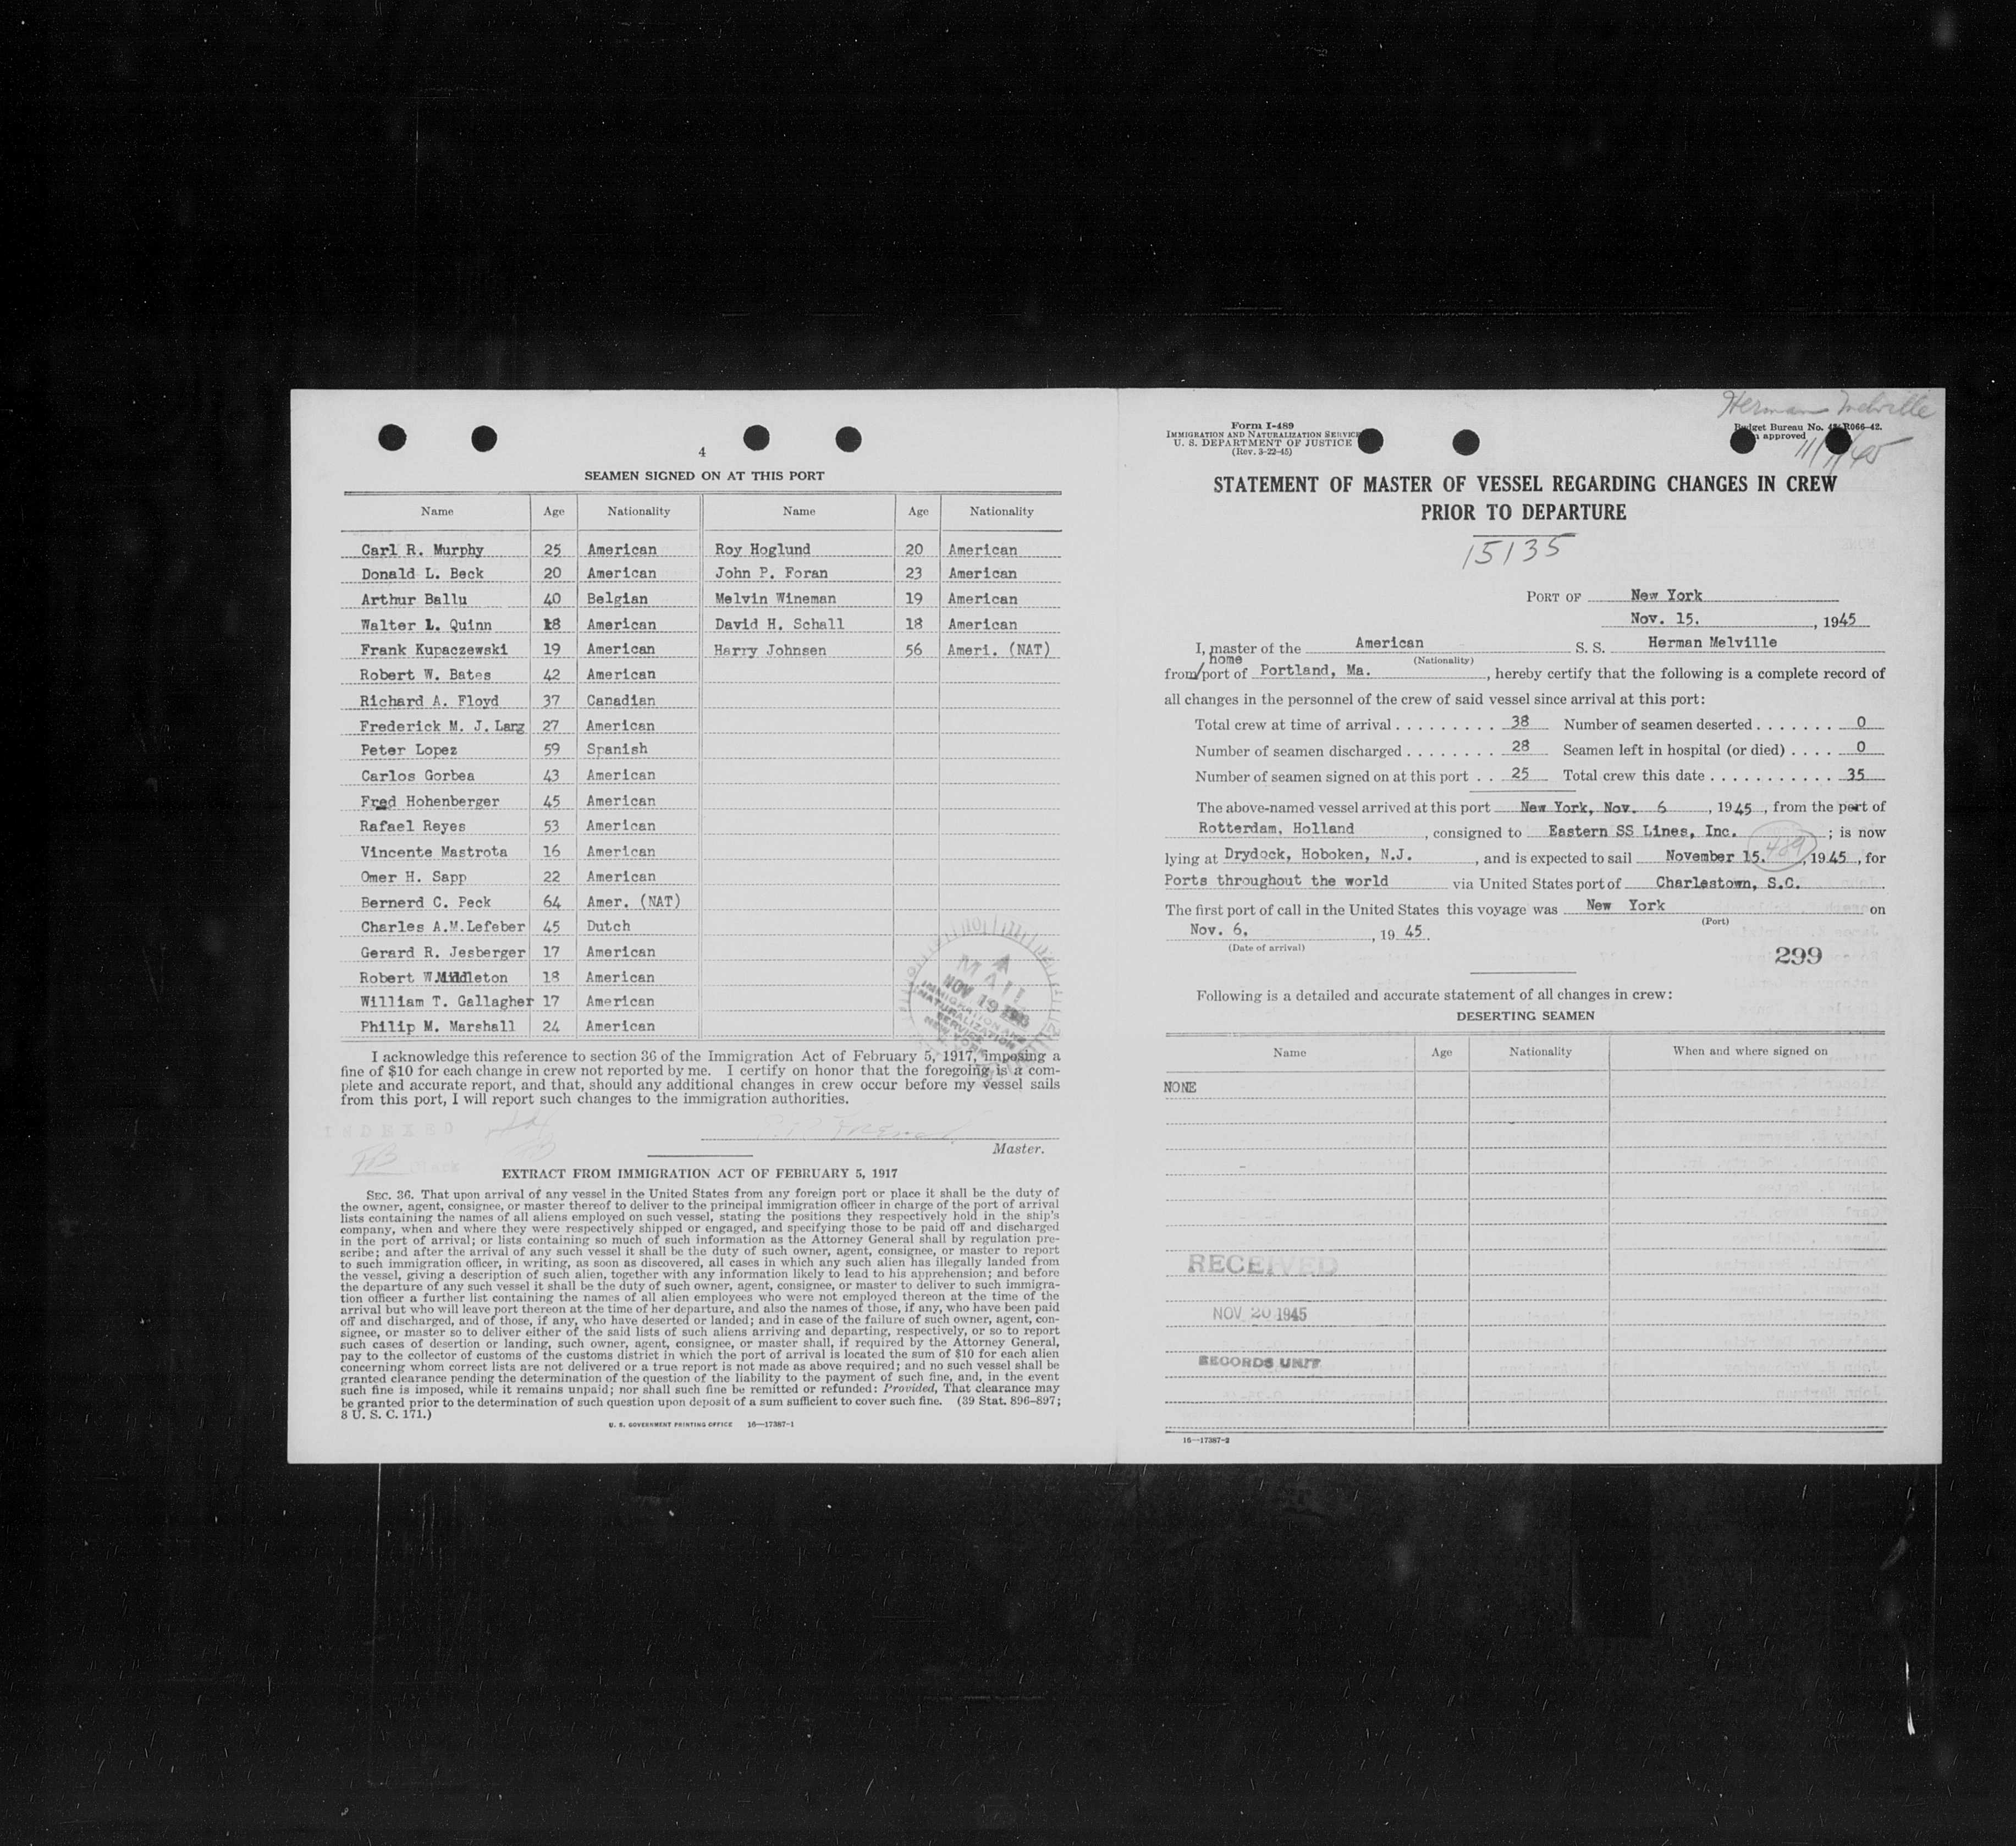 4
SEAMEN SIGNED ON AT THIS PORT
Name Age Nationality Name Age Nationality
Carl R. Murphy 25 American Roy Hoglund 20 American
Donald L. Beck 20 American John P. Foran 23 American
Arthur Ballu 40 Belgian Melvin Wineman 19 American
Walter L. Quinn 18 American David H. Schall 18 American
Frank Kupaczewski 19 American Harry Johnsen 56 Ameri. (NAT)
Robert W. Bates 42 American
Richard A. Floyd 37 Canadian
Frederick M. J. Larg 27 American
Peter Lopez 59 Spanish
Carlos Gorbea 43 American
Fred Hohenberger 45 American
Rafael Reyes 53 American
Vincente Mastrota 16 American
Omer H. Sapp 22 American
Bernerd C. Peck 64 Amer. (NAT)
Charles A.M.Lefeber 45 Dutch
Gerard R. Jesberger 17 American
Robert W.Middleton 18 American
William T. Gallagher 17 American
Philip M. Marshall 24 American
MAIL
NOV 19
IMMIGRATION AND
NATURALIZATION
SERVICE
NEW YORK
I acknowledge this reference to section 36 of the Immigration Act of February 5, 1917, imposing a
fine of $10 for each change in crew not reported by me. I certify on honor that the foregoing is a com-
plete and accurate report, and that, should any additional changes in crew occur before my vessel sails
from this port, I will report such changes to the immigration authorities.
INDEXED
Clerk
Master.
EXTRACT FROM IMMIGRATION ACT OF FEBRUARY 5, 1917
SEC. 36. That upon arrival of any vessel in the United States from any foreign port or place it shall be the duty of
the owner, agent, consignee, or master thereof to deliver to the principal immigration officer in charge of the port of arrival
lists containing the names of all aliens employed on such vessel, stating the positions they respectively hold in the ship's
company, when and where they were respectively shipped or engaged, and specifying those to be paid off and discharged
in the port of arrival; or lists containing so much of such information as the Attorney General shall by regulation pre-
scribe; and after the arrival of any such vessel it shall be the duty of such owner, agent, consignee, or master to report
to such immigration officer, in writing, as soon as discovered, all cases in which any such alien has illegally landed from
the vessel, giving a description of such alien, together with any information likely to lead to his apprehension; and before
the departure of any such vessel it shall be the duty of such owner, agent, consignee, or master to deliver to such immigra-
tion officer a further list containing the names of all alien employees who were not employed thereon at the time of the
arrival but who will leave port thereon at the time of her departure, and also the names of those, if any, who have been paid
off and discharged, and of those, if any, who have deserted or landed; and in case of the failure of such owner, agent, con-
signee, or master so to deliver either of the said lists of such aliens arriving and departing, respectively, or so to report
such cases of desertion or landing, such owner, agent, consignee, or master shall, if required by the Attorney General,
pay to the collector of customs of the customs district in which the port of arrival is located the sum of $10 for each alien
concerning whom correct lists are not delivered or a true report is not made as above required; and no such vessel shall be
granted clearance pending the determination of the question of the liability to the payment of such fine, and, in the event
such fine is imposed, while it remains unpaid; nor shall such fine be remitted or refunded: Provided, That clearance may
be granted prior to the determination of such question upon deposit of a sum sufficient to cover such fine. (39 Stat. 896–897;
8 U. S. C. 171.)
U. S. GOVERNMENT PRINTING OFFICE 16—17387-1
Herman Melville
Form I-489
IMMIGRATION AND NATURALIZATION SERVICE
U. S. DEPARTMENT OF JUSTICE
(Rev. 3-22-45)
Budget Bureau No. R066-42.
approved
STATEMENT OF MASTER OF VESSEL REGARDING CHANGES IN CREW
PRIOR TO DEPARTURE
15135
PORT OF New York
Nov. 15. , 1945
I, master of the American S. S. Herman Melville
(Nationality)
home
from/port of Portland, Ma. , hereby certify that the following is a complete record of
all changes in the personnel of the crew of said vessel since arrival at this port:
Total crew at time of arrival 38 Number of seamen deserted 0
Number of seamen discharged 28 Seamen left in hospital (or died) 0
Number of seamen signed on at this port 25 Total crew this date 35
The above-named vessel arrived at this port New York, Nov. 6 , 1945 , from the port of
Rotterdam, Holland , consigned to Eastern SS Lines, Inc. ; is now
lying at Drydock, Hoboken, N.J. , and is expected to sail November 15. , 1945 , for
489
Ports throughout the world via United States port of Charlestown, S.C.
The first port of call in the United States this voyage was New York on
(Port)
Nov. 6, , 19 45.
(Date of arrival)
299
Following is a detailed and accurate statement of all changes in crew:
DESERTING SEAMEN
Name Age Nationality When and where signed on
NONE
RECEIVED
NOV 20 1945
RECORDS UNIT
16—17387-2